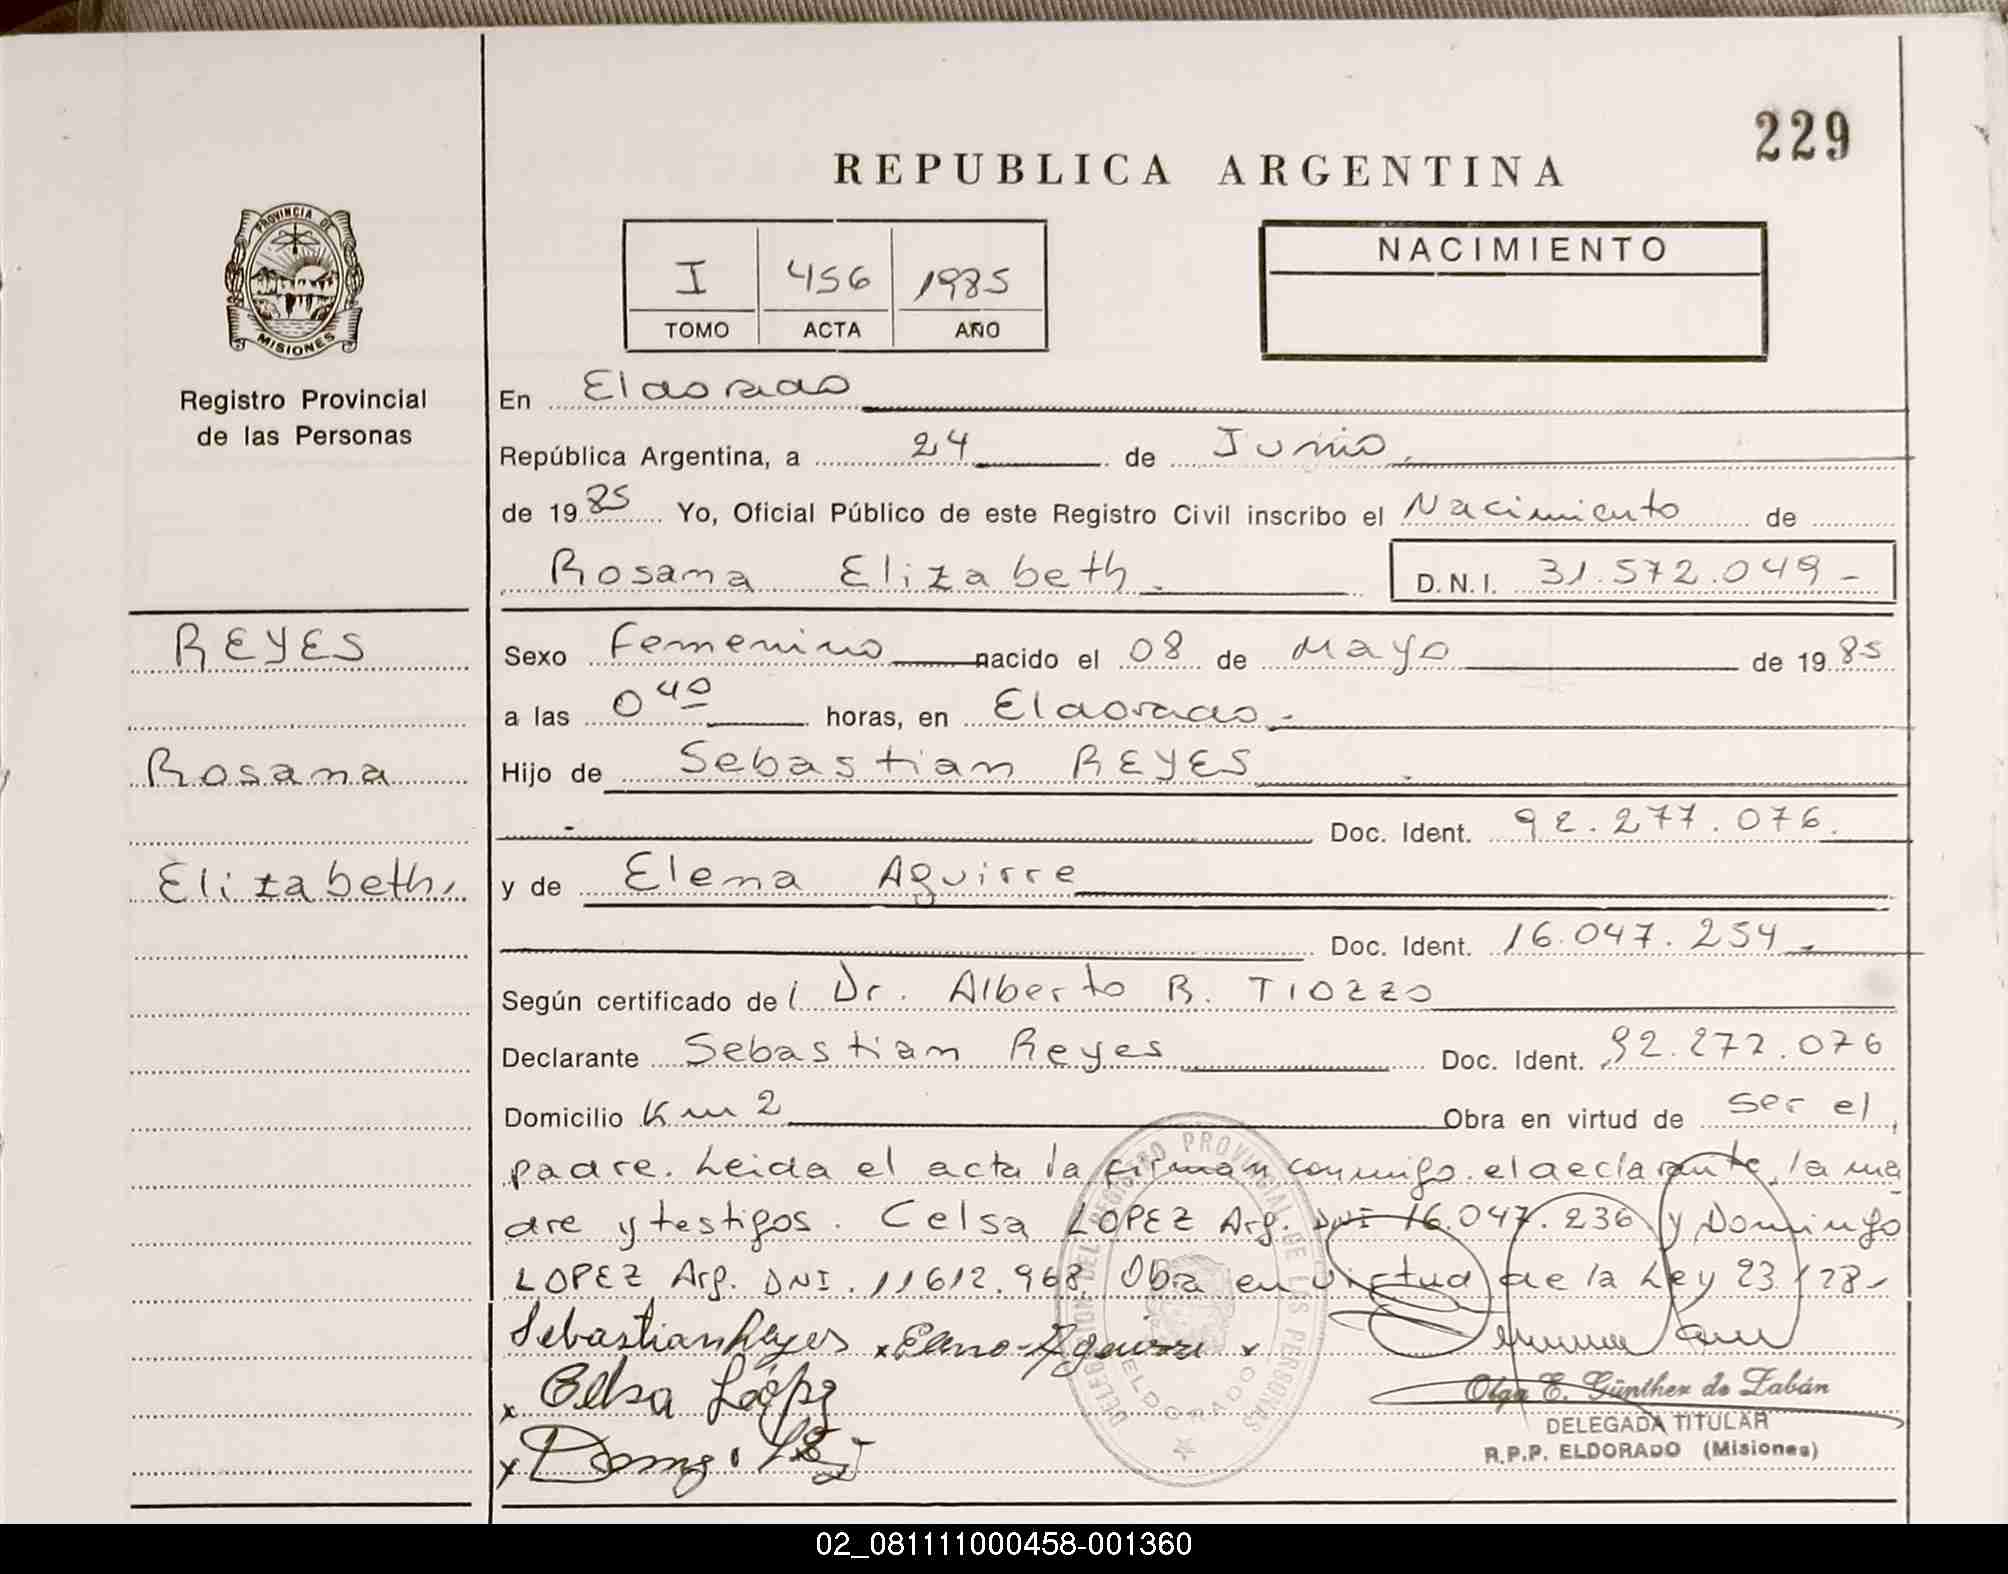 229
REPUBLICA ARGENTINA
PROVINCIA DE
MISIONES
Registro Provincial
de las Personas
I 456 1985
TOMO ACTA AÑO
NACIMIENTO
En Eldorado
República Argentina, a 24 de Junio
de 1985 Yo, Oficial Público de este Registro Civil inscribo el Nacimiento de
Rosana Elizabeth. D.N.I. 31.572.049-
REYES
Rosana
Elizabeth
Sexo Femenino nacido el 08 de Mayo de 1985
a las 0 40 horas, en Eldorado-
Hijo de Sebastian REYES
Doc. Ident. 92.277.076.
y de Elena Aguirre
Doc. Ident. 16.047.254
Según certificado de Dr. Alberto R. TIOZZO
Declarante Sebastian Reyes Doc. Ident. 92.277.076
Domicilio Km 2 Obra en virtud de ser el
padre. Leida el acta la firman conmigo el declarante, la ma
dre y testigos. Celsa LOPEZ Arg. DNI 16.047.236 y Domingo
LOPEZ Arg. DNI. 11612.968. Obra en virtud de la Ley 23.128-
Sebastian Reyes x Elena Aguirre x
x Celsa López
x
DELEGACION DEL REGISTRO PROVINCIAL DE LAS PERSONAS
ELDORADO
Olga E. Günther de Zabán
DELEGADA TITULAR
R.P.P. ELDORADO (Misiones)
02_081111000458-001360